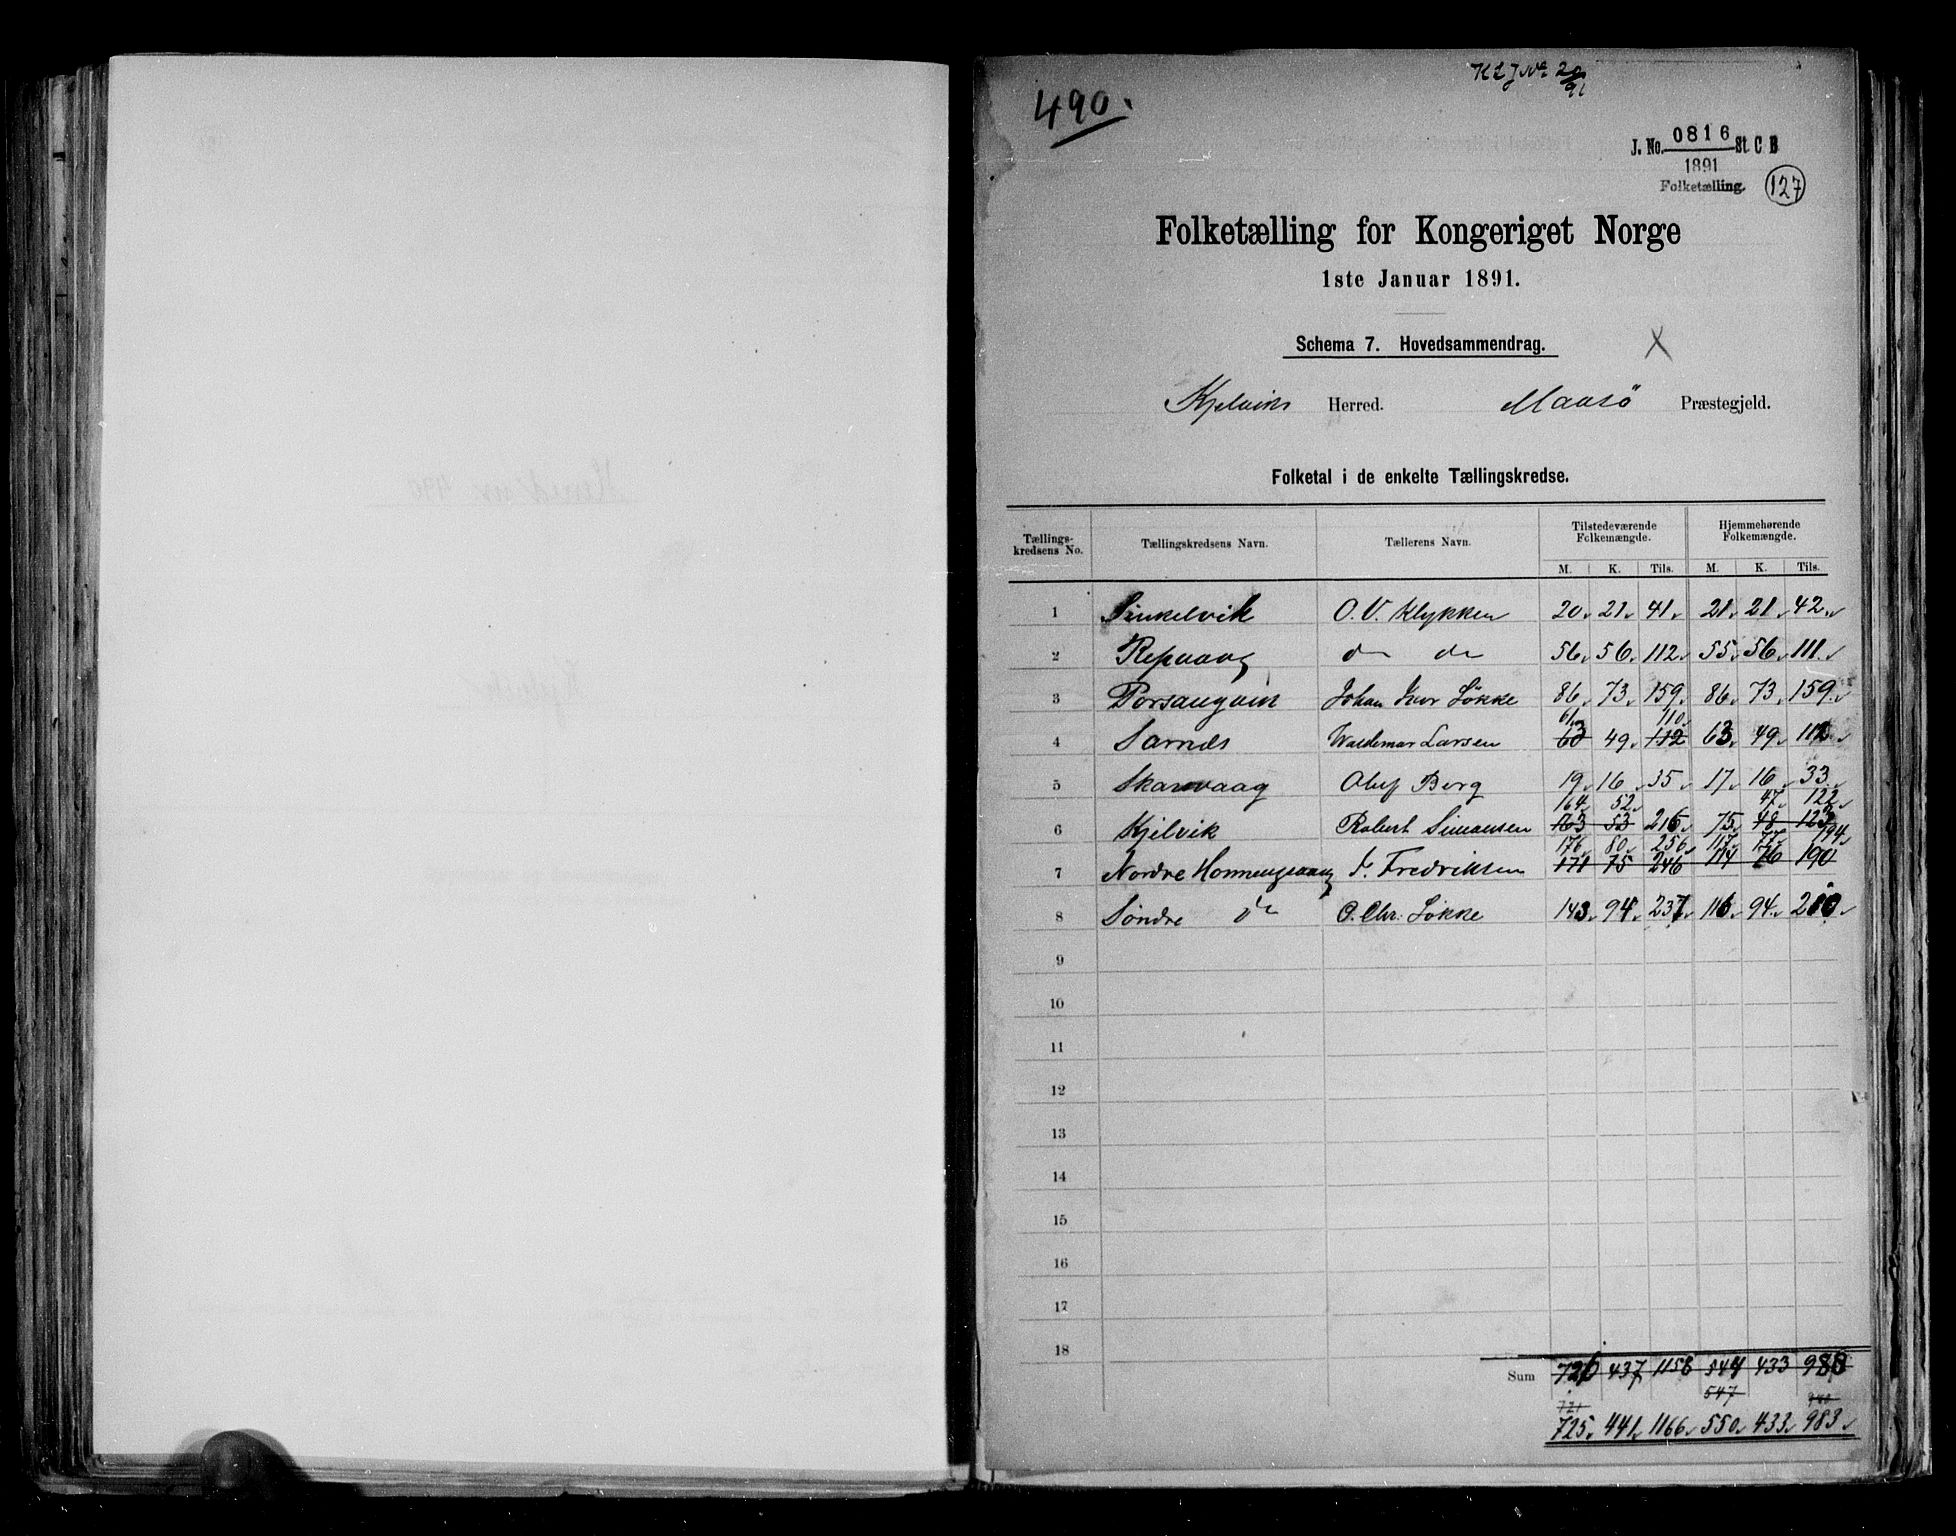 490.
J. No. 0816 St C B
1891
Folketælling.
127
Folketælling for Kongeriget Norge
1ste Januar 1891.
Schema 7. Hovedsammendrag.
Kjelviks Herred. Maasö Præstegjeld.
Folketal i de enkelte Tællingskredse.
Tællings-kredsens No. Tællingskredsens Navn. Tællerens Navn. Tilstedeværende Folkemængde. Hjemmehørende Folkemængde.
M. K. Tils. M. K. Tils.
1 Sinkelvik O. V. Klykken 20 21 41 21 21 42
2 Repvaag do do 56 56 112 55 56 111
3 Porsangvin Johan Iver Løkke 86 73 159 86 73 159
61 110
4 Sarnæs Waldemar Larsen 63 49 112 63 49 112
5 Skarsvaag Oluf Berg 19 16 35 17 16 33
164 52 47 122
6 Kjelvik Robert Simonsen 163 53 216 75 48 123
176 80 256 117 77 194
7 Nordre Honningsvaag J. Fredriksen 171 75 246 114 76 190
8 Søndre do O. Chr. Løkke 143 94 237 116 94 210
9
10
11
12
13
14
15
16
17
18
Sum 437 1158 433 988
547
721
725 441 1166 550 433 983